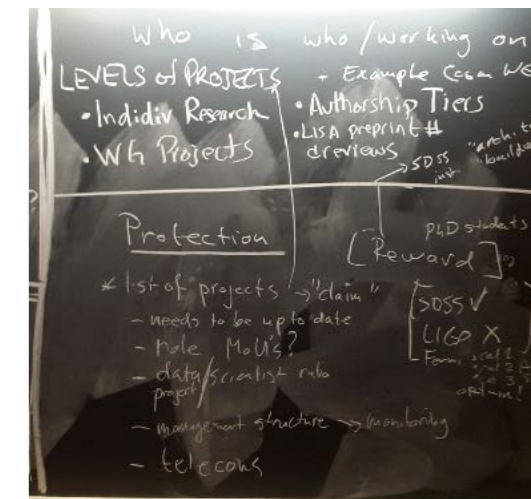 Who is who/working on
LEVELS of PROJECTS
• Indidiv Research
• WG Projects
+ Example Cosm WG
• Authorship Tiers
• LISA preprint #
& reviews
→ SDSS
"archite
builde
Protection
* list of projects → "claim"
- needs to be up to date
- role MoU's?
- data/scientist ratio
project
- management structure → monitoring
- telecons
PhD students
[Reward]
SDSS ✓
LIGO X
opt-in